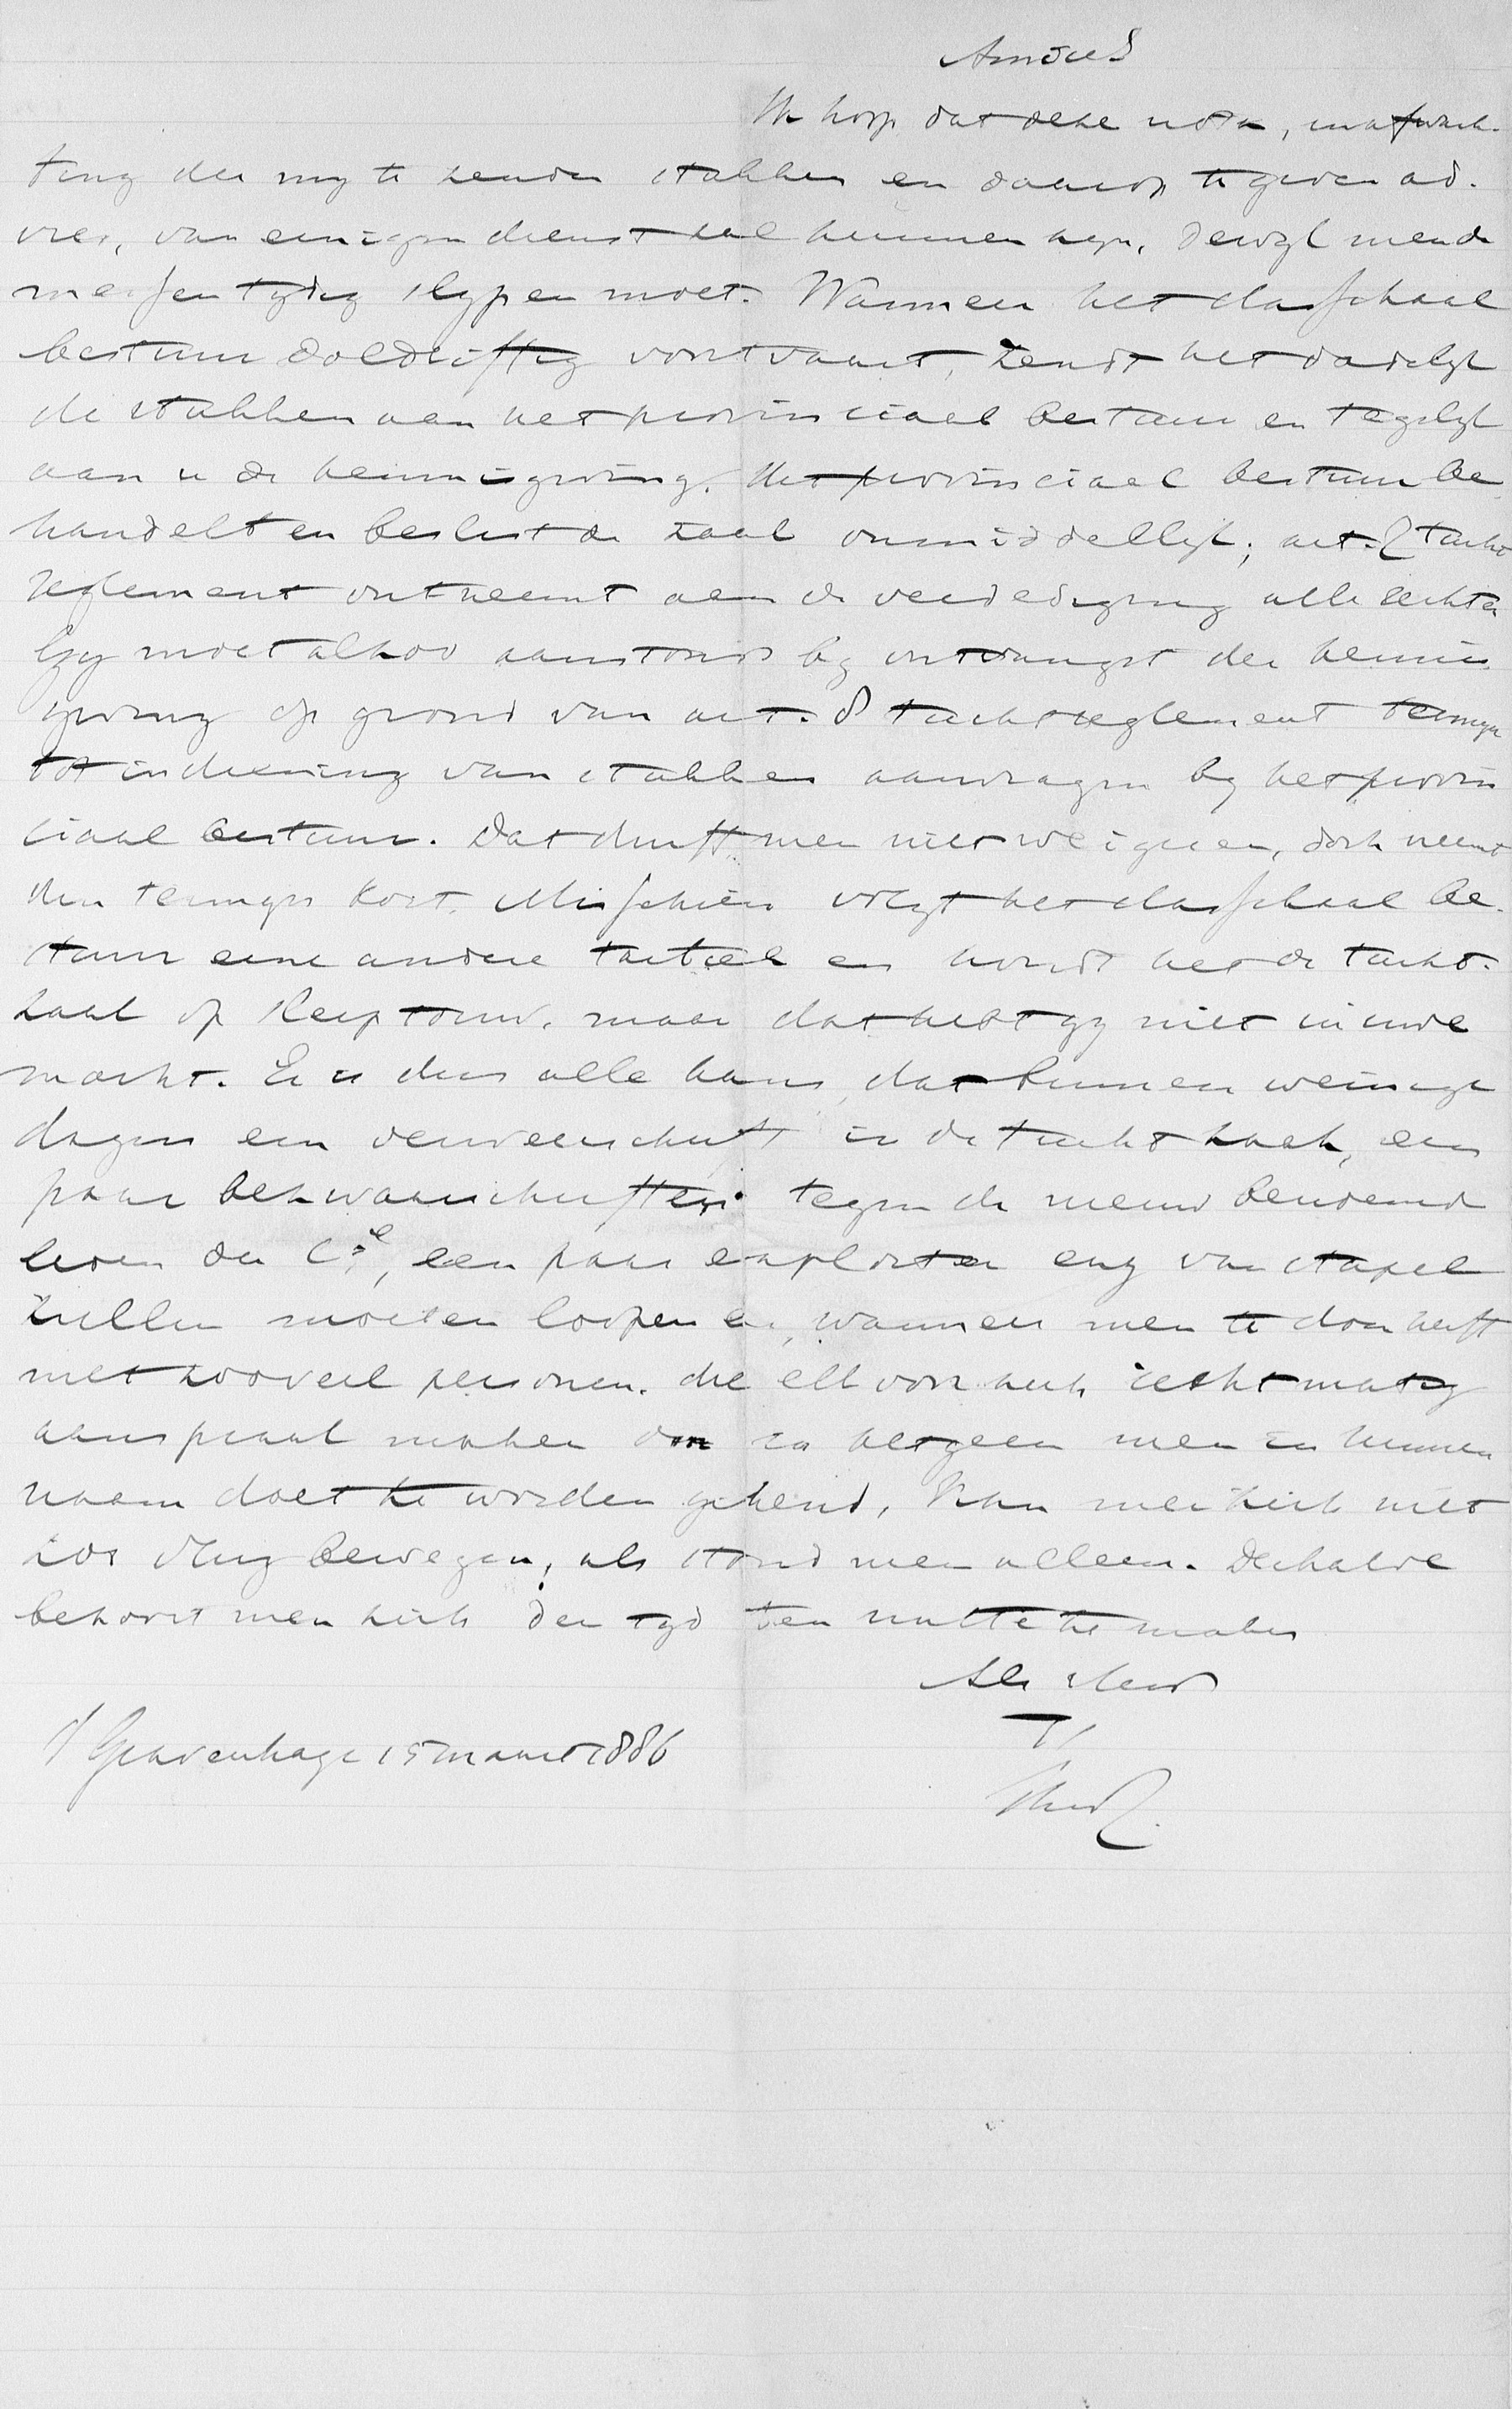 Amice!
Ik hoop dat deze nota, in afwach-
ting der my te zenden stukken en daarop te geven ad-
vies, van eenigen dienst zal kunnen zyn, dewyl men de
messen tydig slypen moet. Wanneer het classikaal
bestuur doldriftig voortvaart, zendt het dadelyk
de stukken aan het provinciaal bestuur en tegelyk
aan u de kennisgeving. Het provinciaal bestuur be-
handelt en beslist de zaak onmiddellyk; art. tucht
reglement ontneemt aan de verdediging alle rechten
Gy moet alzoo aanstonds by ontvangst der kennis
geving op grond van art. 8 tuchtreglement termyn
tot indiening van stukken aanvragen by het provin
ciaal bestuur. Dat durft men niet weigeren, doch neemt
den termyn kort. Misschien volgt het classikaal be-
stuur eene andere tactiek en houdt het de tucht-
zaak op sleeptouw, maar dat hebt gy niet in uwe
macht. Er is dus alle kans, dat binnen weinige
dagen een verweerschrift in de tuchtzaak, een
paar bezwaarschriften tegen de nieuw benoemde
leden der Cie, een paar exploiten enz van stapel
zullen moeten loopen en, wanneer men te doen heeft
met zooveel personen, die elk voor zich rechtmatig
aanspraak maken om in hetgeen men in hunnen
naam doet te worden gekend, kan men zich niet
zoo vlug bewegen, als stond men alleen. Derhalve
behoort men zich den tyd ten nutte te maken
's Gravenhage 15 maart 1886